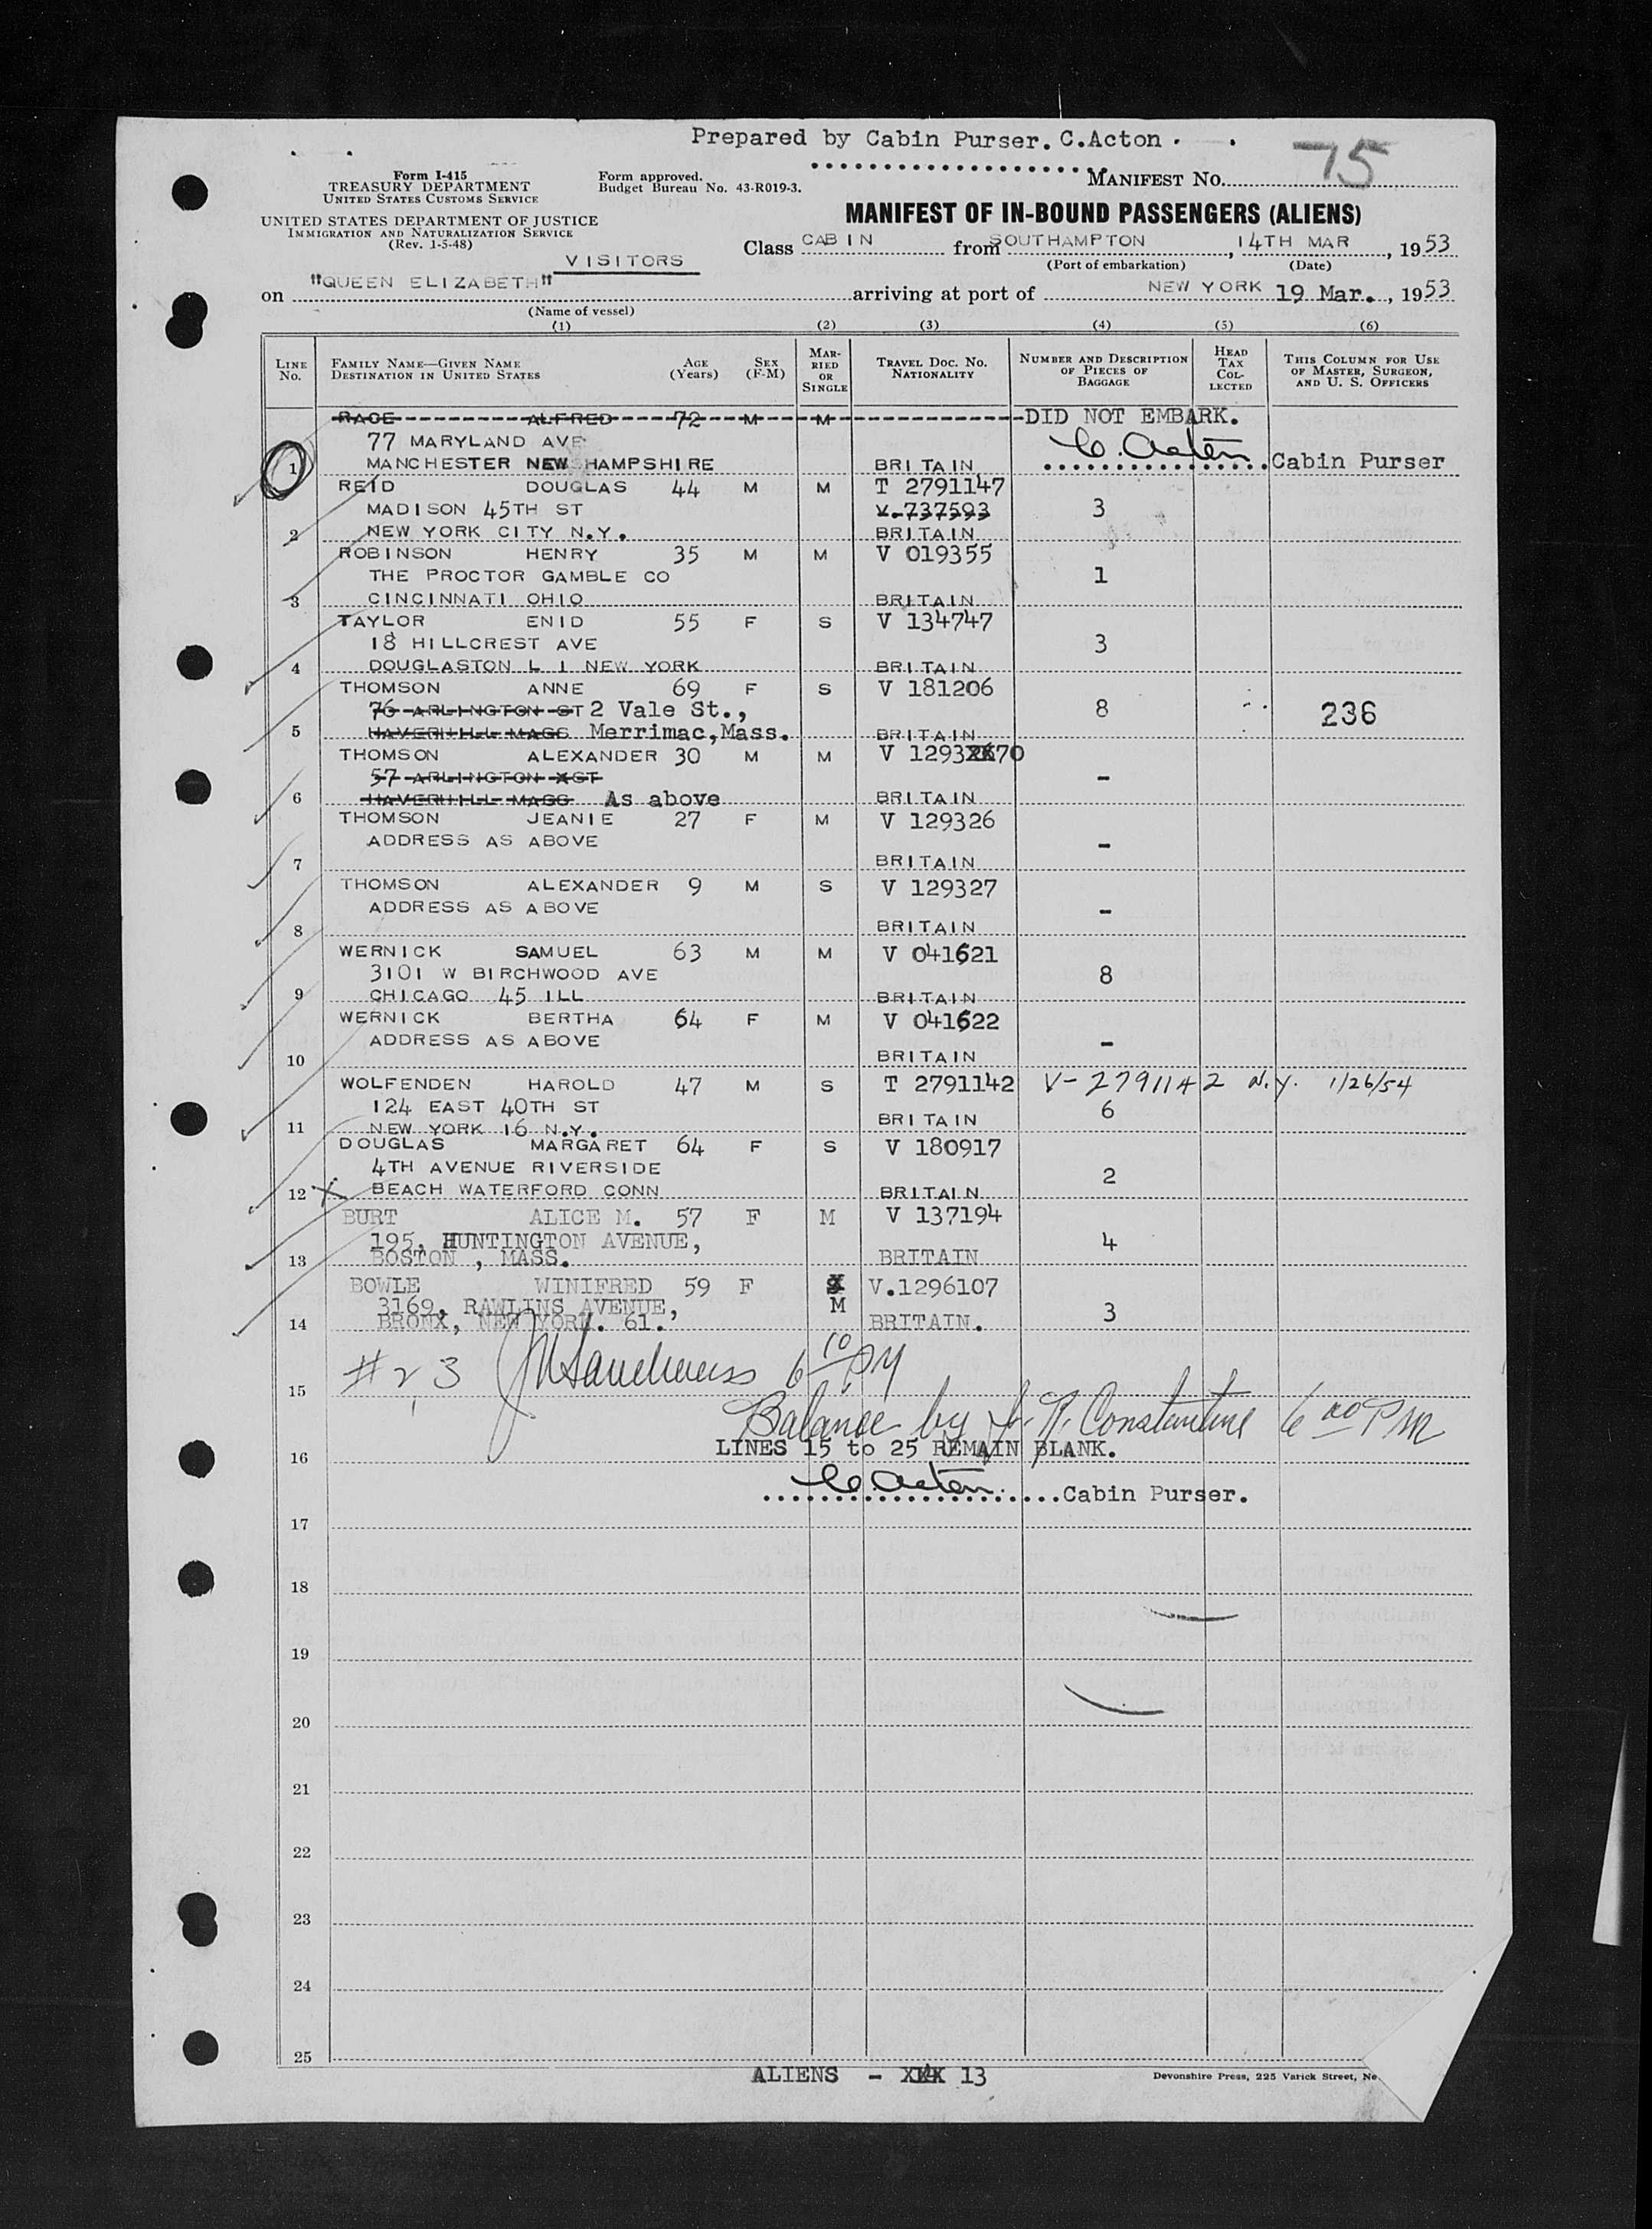 Prepared by Cabin Purser. C.Acton.
Form I-415
TREASURY DEPARTMENT
UNITED STATES CUSTOMS SERVICE
UNITED STATES DEPARTMENT OF JUSTICE
IMMIGRATION AND NATURALIZATION SERVICE
(Rev. 1-5-48)
Form approved.
Budget Bureau No. 43-R019-3.
MANIFEST NO. 75
MANIFEST OF IN-BOUND PASSENGERS (ALIENS)
Class CABIN from SOUTHAMPTON, 14TH MAR, 1953
(Port of embarkation) (Date)
VISITORS
on "QUEEN ELIZABETH" arriving at port of NEW YORK 19 Mar., 1953
(Name of vessel)
(1) (2) (3) (4) (5) (6)
LINE NO. FAMILY NAME—GIVEN NAME DESTINATION IN UNITED STATES AGE (Years) SEX (F-M) MARRIED OR SINGLE TRAVEL DOC. NO. NATIONALITY NUMBER AND DESCRIPTION OF PIECES OF BAGGAGE HEAD TAX COLLECTED THIS COLUMN FOR USE OF MASTER, SURGEON, AND U. S. OFFICERS
ALFRED 72 M M DID NOT EMBARK.
77 MARYLAND AVE C. Acton
1 MANCHESTER NEW HAMPSHIRE BRITAIN Cabin Purser
REID DOUGLAS 44 M M T 2791147
MADISON 45TH ST V.737593 3
2 NEW YORK CITY N.Y. BRITAIN
ROBINSON HENRY 35 M M V 019355
THE PROCTOR GAMBLE CO 1
3 CINCINNATI OHIO BRITAIN
TAYLOR ENID 55 F S V 134747
18 HILLCREST AVE 3
4 DOUGLASTON L I NEW YORK BRITAIN
THOMSON ANNE 69 F S V 181206
76 ARLINGTON ST 2 Vale St., 8 236
5 HAVERHILL MASS Merrimac,Mass. BRITAIN
THOMSON ALEXANDER 30 M M V 1293XX70
57 ARLINGTON XST -
6 HAVERHILL MASS As above BRITAIN
THOMSON JEANIE 27 F M V 129326
ADDRESS AS ABOVE -
7 BRITAIN
THOMSON ALEXANDER 9 M S V 129327
ADDRESS AS ABOVE -
8 BRITAIN
WERNICK SAMUEL 63 M M V 041621
3101 W BIRCHWOOD AVE 8
9 CHICAGO 45 ILL BRITAIN
WERNICK BERTHA 64 F M V 041622
ADDRESS AS ABOVE -
10 BRITAIN
WOLFENDEN HAROLD 47 M S T 2791142 V-2791142 N.Y. 1/26/54
124 EAST 40TH ST 6
11 NEW YORK 16 N.Y. BRITAIN
DOUGLAS MARGARET 64 F S V 180917
4TH AVENUE RIVERSIDE 2
12 X BEACH WATERFORD CONN BRITAIN
BURT ALICE M. 57 F M V 137194
195, HUNTINGTON AVENUE, 4
13 BOSTON , MASS. BRITAIN
BOWLE WINIFRED 59 F V.1296107
3169, RAWLINS AVENUE, M 3
14 BRONX, NEW YORK. 61. BRITAIN.
#23 6 10 PM
15
Balance by J. R. Constantine 6 00 PM
16 LINES 15 to 25 REMAIN BLANK.
C. Acton Cabin Purser.
17
18
19
20
21
22
23
24
25
ALIENS - XXX 13
Devonshire Press, 225 Varick Street, Ne